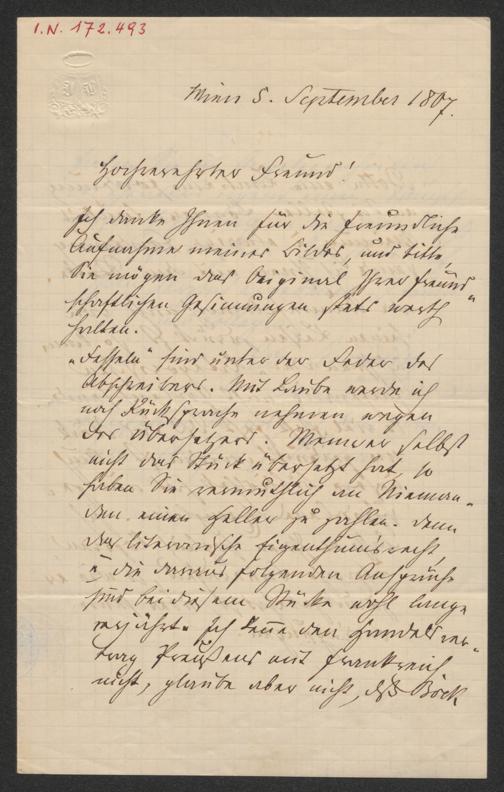 I.N. 172.493
Wien 5. September 1867.
Hochverehrter Freund!
Ich danke Ihnen für die freundliche
Aufnahme meines Bildes, und bitte,
Sie mögen das Original Ihrer freund-
schaftlichen Gesinnungen stets werth
halten.
„Fesseln“ sind unter der Feder des
Abschreibers. Mit Laube werde ich
noch Rücksprache nehmen wegen
des Übersetzers. Wenn er selbst
nicht das Stück übersetzt hat, so
haben Sie vermuthlich an Nieman-
den einen Heller zu zahlen. Denn
das literarische Eigenthumsrecht,
u die daraus folgenden Ansprüche
sind bei diesem Stücke wohl lange
verjährt. Ich kenne den Handelsver-
trag Preußens mit Frankreich
nicht, glaube aber nicht, daß